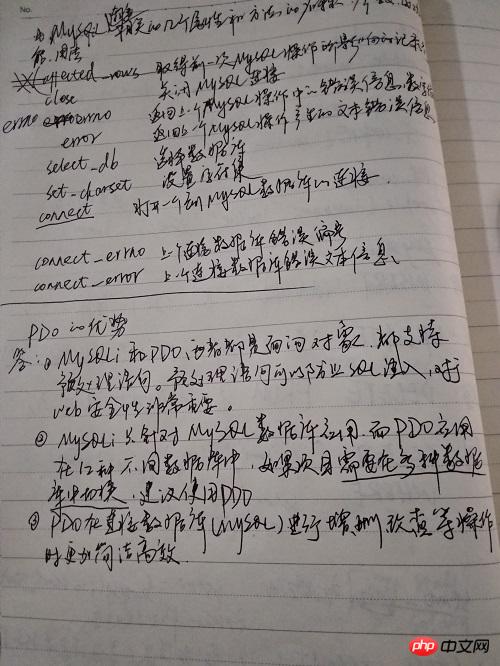 No.
为MySQL连接相关的几个属性和方法的
能,用法
affected_rows 取得前一次MySQL操作所影响的记录
close 关闭MySQL连接
errno errno 返回上一个MySQL操作中的错误信息数字
error 返回上一个MySQL操作产生的文本错误信息
select_db 选择数据库
set_charset 设置字符集
connect 打开一个到MySQL数据库的连接.
connect_errno 上个连接数据库错误编号
connect_error 上个连接数据库错误文本信息、
PDO的优势
答:① MySQLi和PDO,两者都是面向对象,都支持
预处理语句。预处理语句可以防止SQL注入,对于
web安全性非常重要。
② MySQLi只针对MySQL数据库应用.而PDO应用
在12种不同数据库中,如果项目需要在多种数据
库中切换,建议使用PDO
③ PDO在连接数据库(MySQL)进行增删改查等操作
时更加简洁高效.
php 中文网